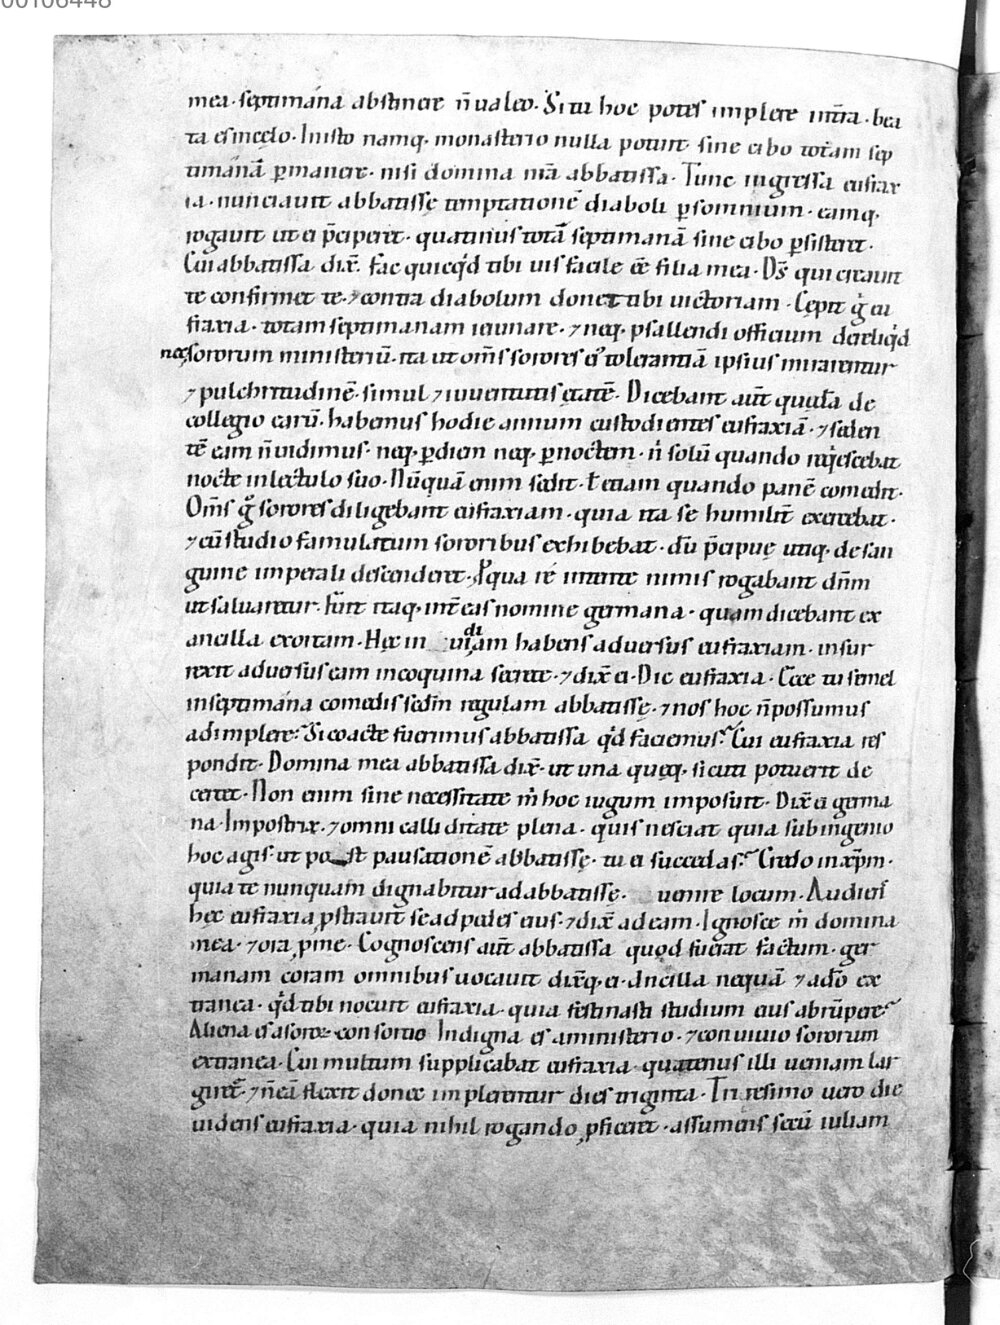 00106448
mea· septimána abstinere n̄ ualeo· Si tu hoc potes implere int̄ra· bea
ta es in cęlo· In isto namq· monasterio nulla potuit sine cibo totam sep
timánā p̱manere· nisi domina m̄a abbatissa· Tunc ingressa eufrax
ia· nunciauit abbatissę temptationē diaboli p̱ somnium· eamq·
rogauit ut ei p̄ciperet· quatinus totā septimanā sine cibo p̱sisteret·
Cui abbatissa dix̄· fac quicq̇d tibi uis facile ē filia mea· D̄s qui creauit
te confirmet te· ⁊ contra diabolum donet tibi uictoriam· Cępit ġ eu
fraxia· totam septimanam ieiunare· ⁊ neq· psallendi officium dereliq̇d
nec sororum ministeriū· ita ut om̄s sorores ei tolerantiā ipsius mirarentur
⁊ pulchritudinē· simul ⁊ iuuentutis ętatē· Dicebant aūt quęda de
collegio earū· habemus hodie annum custodientes eufraxiā· ⁊ seden
tē eam n̄ uidimus· neq· p̱ diem neq· p̱ noctem· n̄ solū quando req̇escebat
nocte in lectulo suo· Nūquā enim sedit· ł etiam quando panē comedit·
Om̄s ġ sorores diligebant eufraxiam· quia ita se humilit̄ exercebat·
⁊ cū studio famulatum sororibus exhibebat· dū p̄cipuę utiq· de san
guine imperali descenderet· Pqua re intente nimis rogabant dn̄m
ut saluaretur· Fuit itaq· int̄ eas nomine germana· quam dicebant ex
ancilla exortam· Hęc inuidiam habens aduersus eufraxiam· insur
rexit aduersus eam in coquina secrete· ⁊ dix̄ ei· Dic eufraxia· Ecce tu semel
in septimána comedis secdm̄ regulam abbatissę· ⁊ nos hoc n̄ possumus
adimplere· Si coacte fuerimus abbatissa q̇d faciemus? Cui eufraxia res
pondit· Domina mea abbatissa dix̄· ut una quęq· sicuti potuerit de
certet· Non enim sine necessitate m̄ hoc iugum imposuit· Dix̄ ei germa
na· Impostrix· ⁊ omni calliditate plena· quis nesciat quia sub ingenio
hoc agis· ut post pausationē abbatissę· tu ei succedas? Credo in xp̄m·
quia te nunquam dignabitur ad abbatissę· uenire locum· Audiens
hęc eufraxia p̱strauit se ad pedes eius· ⁊ dix̄ ad eam· Ignosce m̄ domina
mea· ⁊ ora p̱ me· Cognoscens aūt abbatissa quod fuerat factum· ger
manam coram omnibus uocauit dix̄q· ei· Ancilla nequā ⁊ a dō ex
tranea· q̇d tibi nocuit eufraxia· quia festinasti studium eius abrūpere?
Aliena es a soroꝝ consortio Indigna es a ministerio· ⁊ conuiuio sororum
extranea· Cui multum supplicabat eufraxia· quatenus illi ueniam lar
giret̄· ⁊ n̄ eā flexit donec implerentur dies triginta· Tricesimo uero die
uidens eufraxia· quia nihil rogando p̱ficeret· assumens secū iuliam